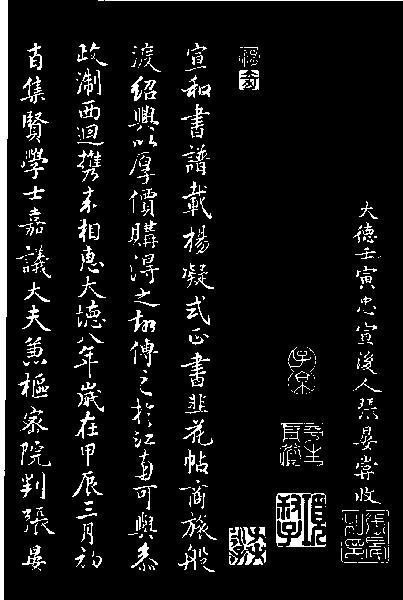 大德壬寅忠宣後人張晏嘗收
宣和書譜載楊凝式正書韭花帖商旅般
渡紹興以厚價購得之却傳之於江南可與叅
政淛西迴携來相惠大德八年歲在甲辰三月初
吉集賢學士嘉議大夫兼樞密院判張晏